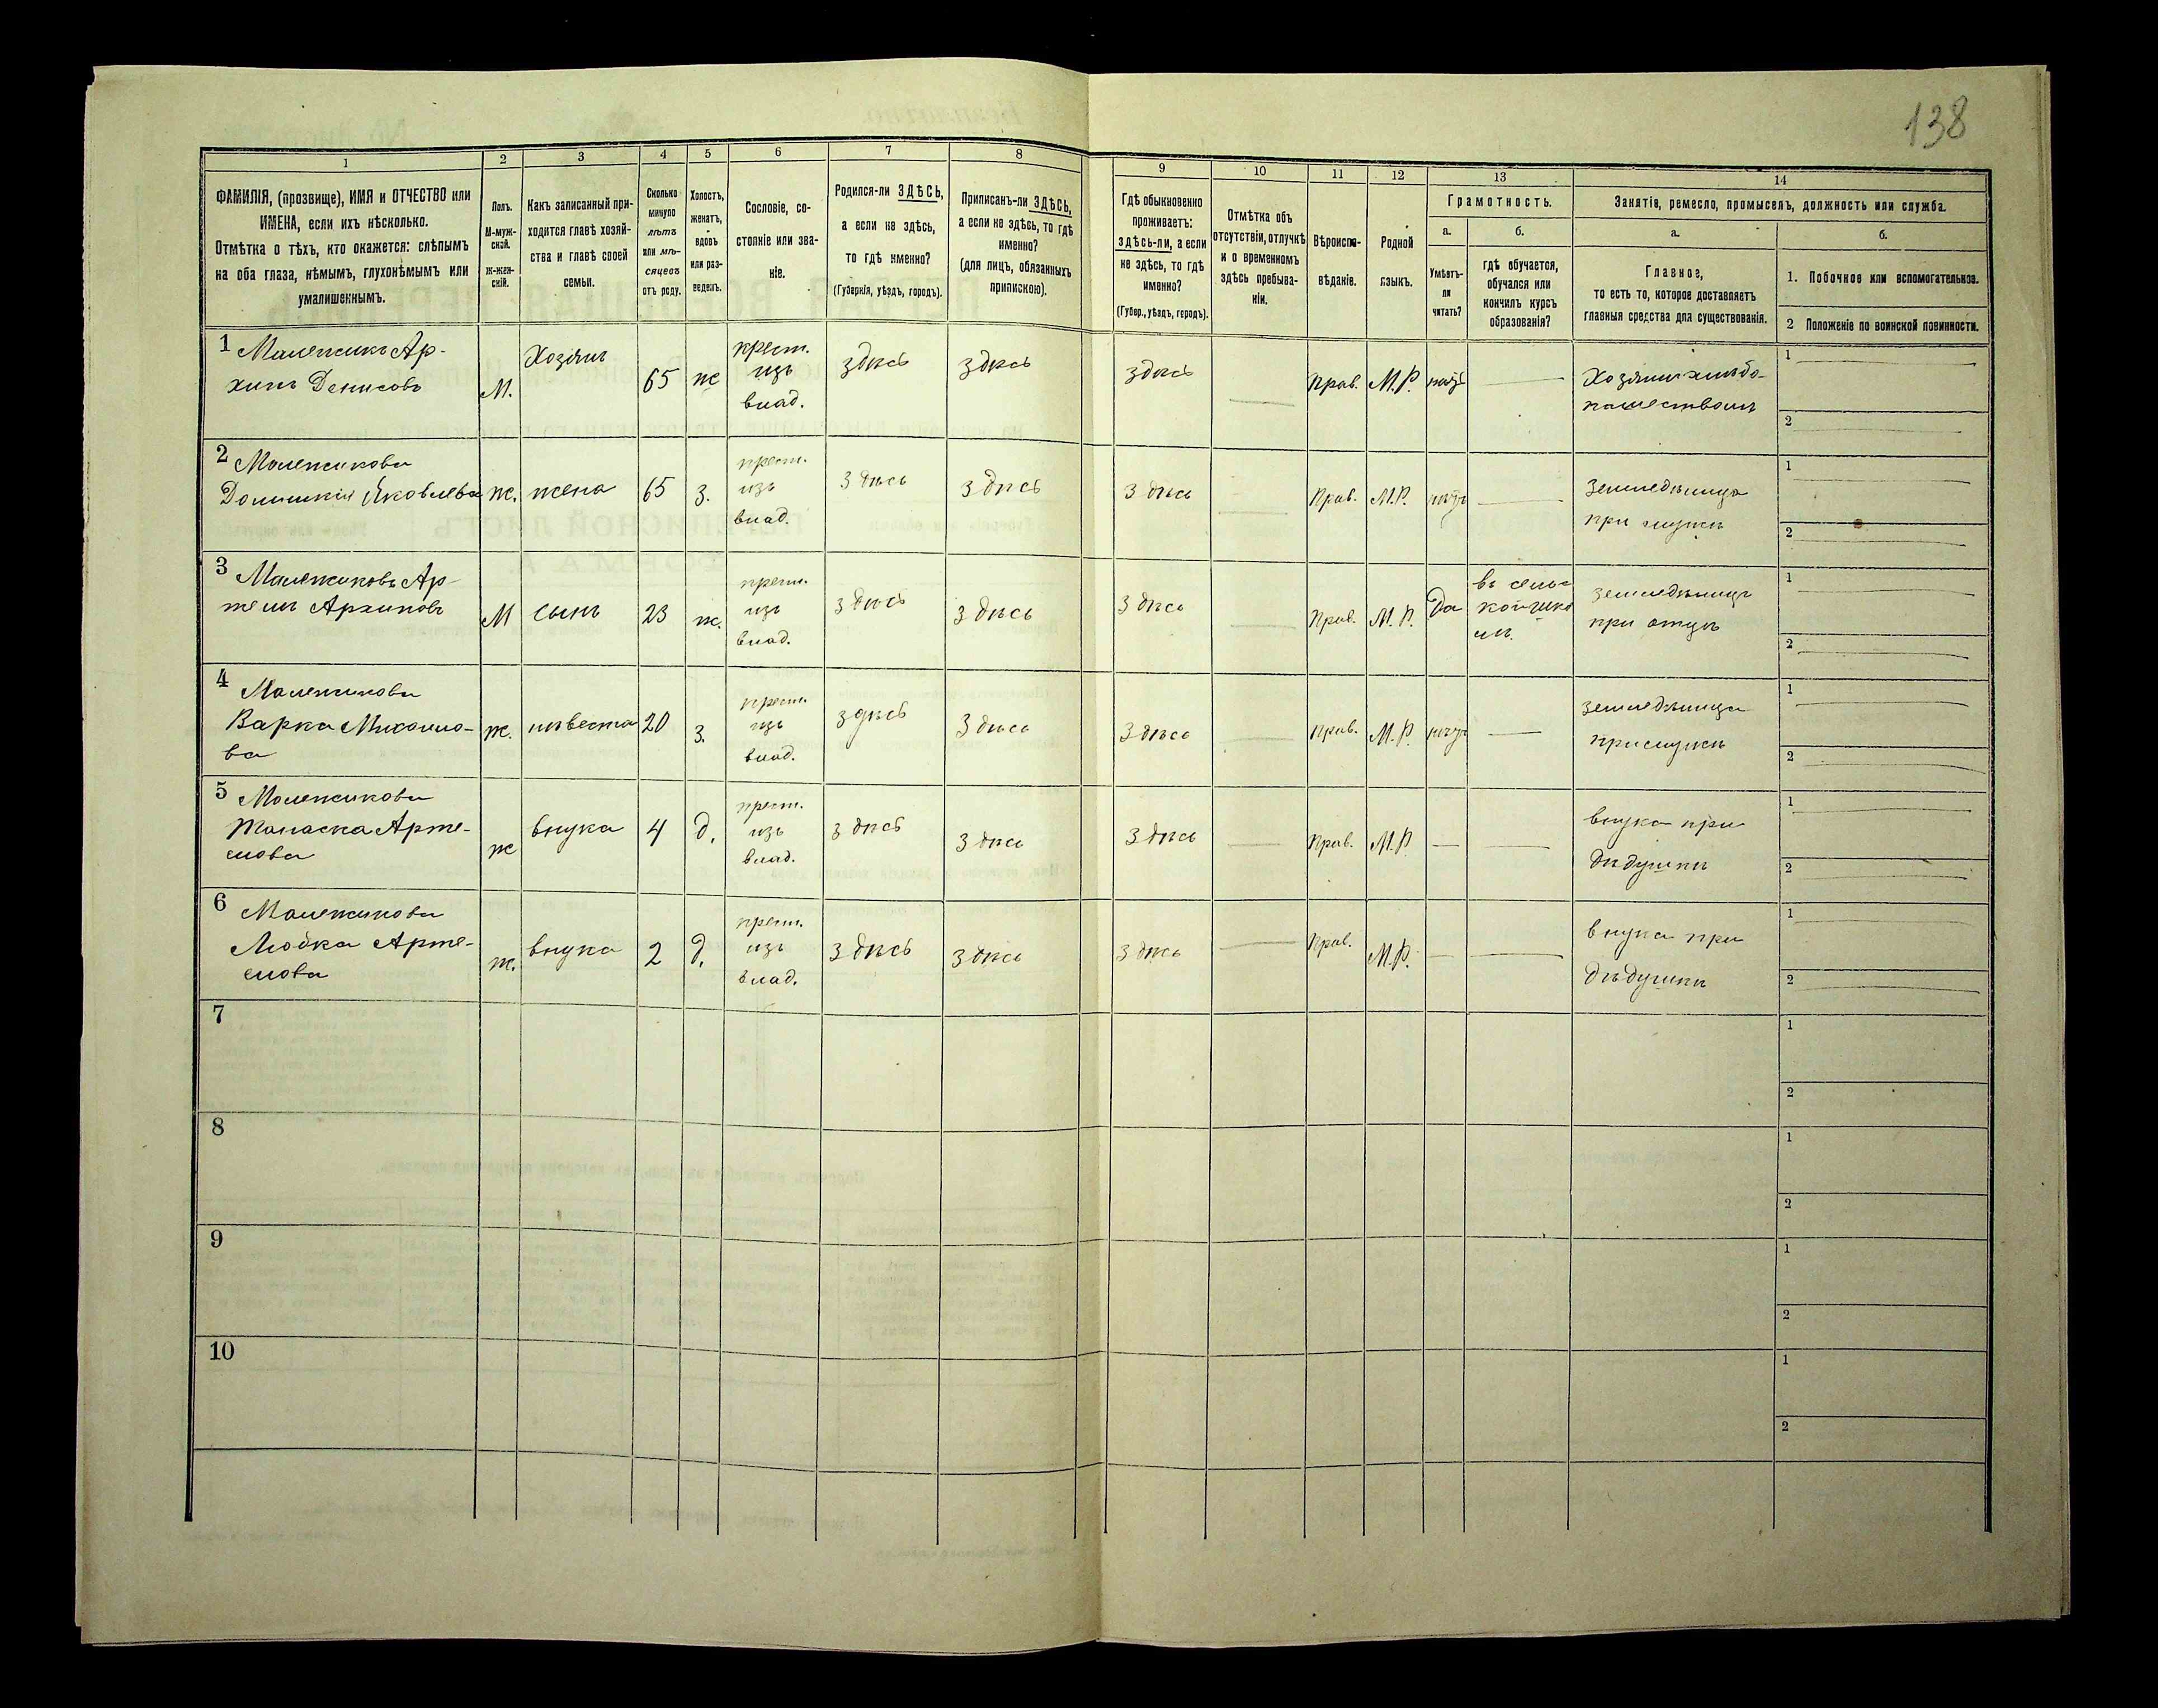 138
1 2 3 4 5 6 7 8 9 10 11 12 13 14
ФАМИЛІЯ, (прозвище), ИМЯ и ОТЧЕСТВО или
ИМЕНА, если ихъ нѣсколько.
Отмѣтка о тѣхъ, кто окажется: слѣпымъ
на оба глаза, нѣмымъ, глухонѣмымъ или
умалишеннымъ.
Полъ.
М-муж-
ской.
Ж-жен-
скій.
Какъ записанный при-
ходится главѣ хозяй-
ства и главѣ своей
семьи.
Сколько
минуло
лѣтъ
или мѣ-
сяцевъ
отъ роду.
Холостъ,
женатъ,
вдовъ
или раз-
веденъ.
Сословіе, со-
стояніе или зва-
ніе.
Родился-ли ЗДѢСЬ,
а если не здѣсь,
то гдѣ именно?
(Губернія, уѣздъ, городъ).
Приписанъ-ли ЗДѢСЬ,
а если не здѣсь, то гдѣ
именно?
(для лицъ, обязанныхъ
припискою).
Гдѣ обыкновенно
проживаетъ:
здѣсь-ли, а если
не здѣсь, то гдѣ
именно?
(Губер., уѣздъ, городъ).
Отмѣтка объ
отсутствіи, отлучкѣ
и о временномъ
здѣсь пребыва-
ніи.
Вѣроиспо-
вѣданіе.
Родной
языкъ.
Грамотность.
а.
Умѣетъ-
ли
читать?
б.
гдѣ обучается,
обучался или
кончилъ курсъ
образованія?
Занятіе, ремесло, промыселъ, должность или служба.
а.
Главное,
то есть то, которое доставляетъ
главныя средства для существованія.
б.
1. Побочное или вспомогательное.
2 Положеніе по воинской повинности.
1 Малежикъ Ар-
хипъ Денисовъ
М.
Хозяинъ
65
ж
крест.
изъ
влад.
здѣсь
здѣсь
здѣсь
Прав.
М.Р.
нѣтъ
Хозяинъ хлѣбо-
пашествомъ
1
2
2 Малежикова
Домникія Яковлева
ж.
жена
65
з.
крест.
изъ
влад.
здѣсь
здѣсь
здѣсь
Прав.
М.Р.
нѣтъ
земледѣлица
при мужѣ
1
2
3 Малежиковъ Ар-
темъ Архиповъ
М
сынъ
23
ж.
крест.
изъ
влад.
здѣсь
здѣсь
здѣсь
Прав.
М.Р.
Да
въ сель-
земледѣлецъ
при отцѣ
1
2
4 Малежикова
Варка Михайло-
ва
ж.
невѣста
20
з.
крест.
изъ
влад.
здѣсь
здѣсь
здѣсь
Прав.
М.Р.
нѣтъ
земледѣлица
при мужѣ
1
2
5 Малежикова
Танаска Арте-
мова
ж
внука
4
д.
крест.
изъ
влад.
здѣсь
здѣсь
здѣсь
Прав.
М.Р
внука при
дѣдушкѣ
1
2
6 Малежикова
Любка Арте-
мова
ж.
внука
2
д.
крест.
изъ
влад.
здѣсь
здѣсь
здѣсь
Прав.
М.Р.
внука при
дѣдушкѣ
1
2
7
1
2
8
1
2
9
1
2
10
1
2